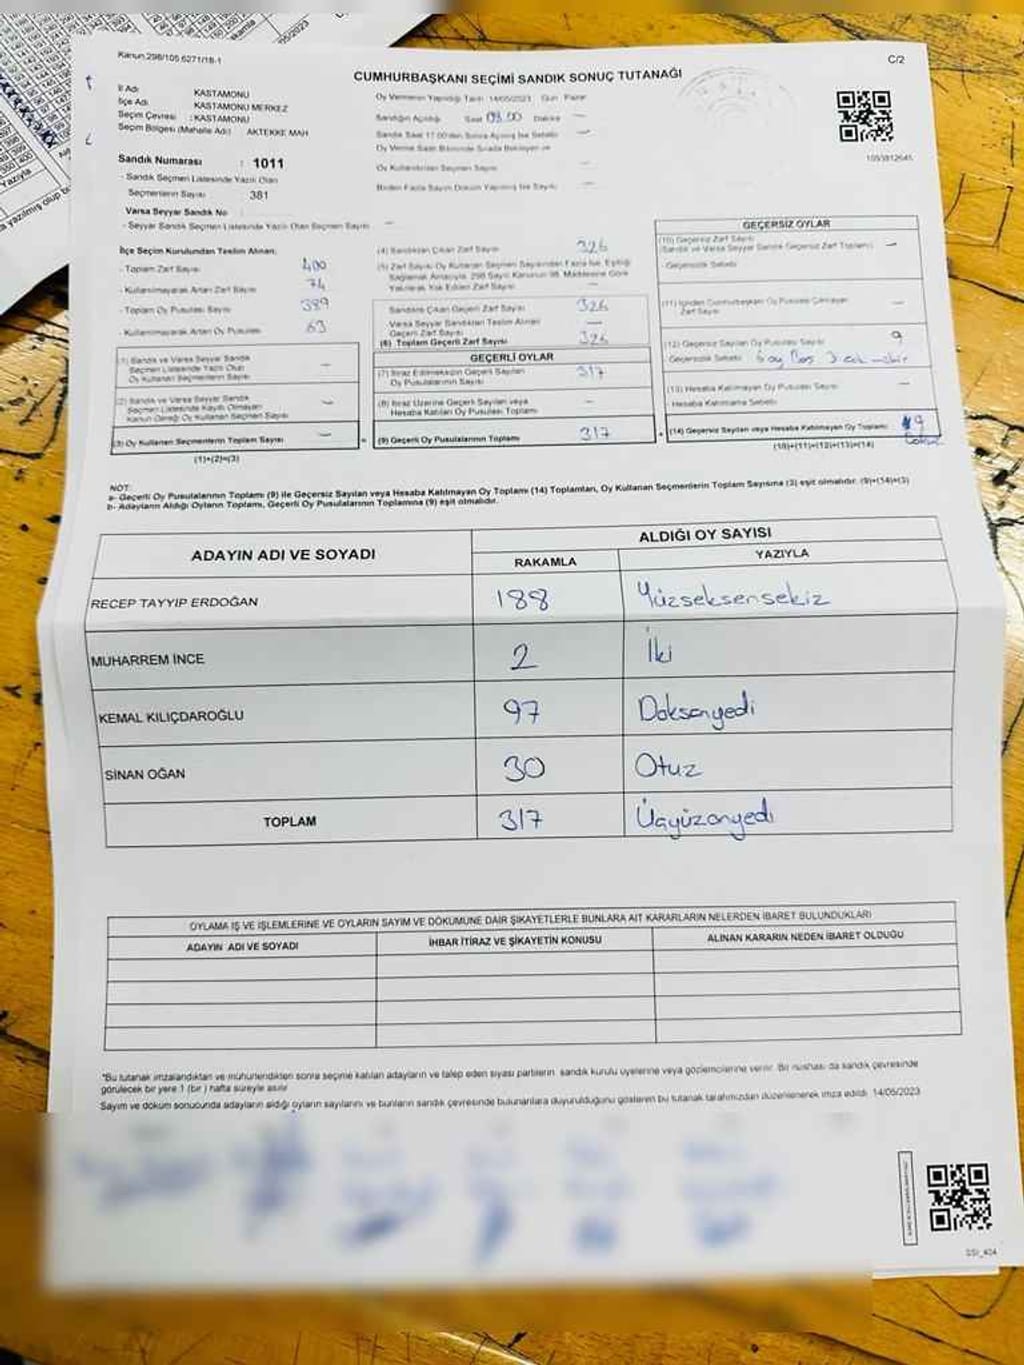 Kanun:298/105 6271/18-1
C/2
CUMHURBAŞKANI SEÇİMİ SANDIK SONUÇ TUTANAĞI
İl Adı KASTAMONU
İlçe Adı KASTAMONU MERKEZ
Seçim Çevresi : KASTAMONU
Seçim Bölgesi (Mahalle Adı) AKTEKKE MAH
Sandık Numarası : 1011
- Sandık Seçmen Listesinde Yazılı Olan
Seçmenlerin Sayısı 381
Varsa Seyyar Sandık No
- Seyyar Sandık Seçmen Listesinde Yazılı Olan Seçmen Sayısı —
Oy Vermenin Yapıldığı Tarih 14/05/2023 Gün Pazar
Sandığın Açıldığı Saat 08.00 Dakika —
Sandık Saat 17.00'den Sonra Açılmış İse Sebebi —
Oy Verme Saati Bitiminde Sırada Bekleyen ve
Oy Kullandırılan Seçmen Sayısı —
Birden Fazla Sayım Döküm Yapılmış İse Sayısı —
1093812645
İlçe Seçim Kurulundan Teslim Alınan:
- Toplam Zarf Sayısı 400
- Kullanılmayarak Artan Zarf Sayısı 74
- Toplam Oy Pusulası Sayısı 389
- Kullanılmayarak Artan Oy Pusulası 63
(1) Sandık ve Varsa Seyyar Sandık
Seçmen Listesinde Yazılı Olan
Oy Kullanan Seçmenlerin Sayısı —
(2) Sandık ve Varsa Seyyar Sandık
Seçmen Listesinde Kayıtlı Olmayan
Kanun Gereği Oy Kullanan Seçmen Sayısı —
(3) Oy Kullanan Seçmenlerin Toplam Sayısı —
(1)+(2)=(3)
(4) Sandıktan Çıkan Zarf Sayısı 326
(5) Zarf Sayısı Oy Kullanan Seçmen Sayısından Fazla İse, Eşitliği
Sağlamak Amacıyla, 298 Sayılı Kanunun 98. Maddesine Göre
Yakılarak Yok Edilen Zarf Sayısı —
Sandıkta Çıkan Geçerli Zarf Sayısı 326
Varsa Seyyar Sandıktan Teslim Alınan
Geçerli Zarf Sayısı —
(6) Toplam Geçerli Zarf Sayısı 326
GEÇERLİ OYLAR
(7) İtiraz Edilmeksizin Geçerli Sayılan
Oy Pusulalarının Sayısı 317
(8) İtiraz Üzerine Geçerli Sayılan veya
Hesaba Katılan Oy Pusulası Toplamı —
(9) Geçerli Oy Pusulalarının Toplamı 317
GEÇERSİZ OYLAR
(10) Geçersiz Zarf Sayısı
(Sandık ve Varsa Seyyar Sandık Geçersiz Zarf Toplamı) —
- Geçersizlik Sebebi
(11) İçinden Cumhurbaşkanı Oy Pusulası Çıkmayan
Zarf Sayısı —
(12) Geçersiz Sayılan Oy Pusulası Sayısı 9
Geçersizlik Sebebi 6 oy Boş 3
(13) Hesaba Katılmayan Oy Pusulası Sayısı —
- Hesaba Katılmama Sebebi
(14) Geçersiz Sayılan veya Hesaba Katılmayan Oy Toplamı 9
(10)+(11)+(12)+(13)=(14)
NOT:
a- Geçerli Oy Pusulalarının Toplamı (9) ile Geçersiz Sayılan veya Hesaba Katılmayan Oy Toplamı (14) Toplamları, Oy Kullanan Seçmenlerin Toplam Sayısına (3) eşit olmalıdır. (9)+(14)=(3)
b- Adayların Aldığı Oyların Toplamı, Geçerli Oy Pusulalarının Toplamına (9) eşit olmalıdır.
ADAYIN ADI VE SOYADI
ALDIĞI OY SAYISI
RAKAMLA YAZIYLA
RECEP TAYYIP ERDOĞAN 188 Yüzseksensekiz
MUHARREM İNCE 2 İki
KEMAL KILIÇDAROĞLU 97 Doksanyedi
SİNAN OĞAN 30 Otuz
TOPLAM 317 Üçyüzonyedi
OYLAMA İŞ VE İŞLEMLERİNE VE OYLARIN SAYIM VE DÖKÜMÜNE DAİR ŞİKAYETLERLE BUNLARA AİT KARARLARIN NELERDEN İBARET BULUNDUKLARI
ADAYIN ADI VE SOYADI İHBAR İTİRAZ VE ŞİKAYETİN KONUSU ALINAN KARARIN NEDEN İBARET OLDUĞU
*Bu tutanak imzalandıktan ve mühürlendikten sonra seçime katılan adayların ve talep eden siyasi partilerin sandık kurulu üyelerine veya gözlemcilerine verilir. Bir nüshası da sandık çevresinde
görülecek bir yere 1 (bir ) hafta süreyle asılır.
Sayım ve döküm sonucunda adayların aldığı oyların sayılarını ve bunların sandık çevresinde bulunanlara duyurulduğunu gösteren bu tutanak tarafımızdan düzenlenerek imza edildi. 14/05/2023